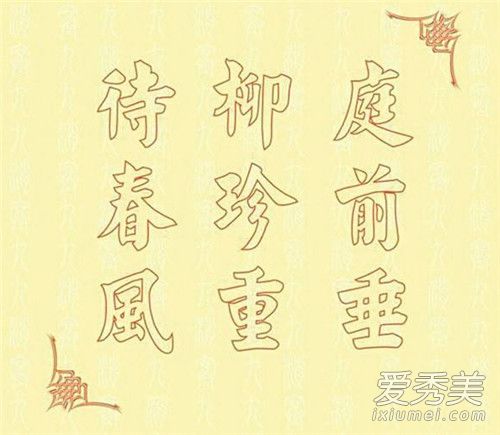 庭前垂
柳珍重
待春風
爱秀美
ixiumei.com